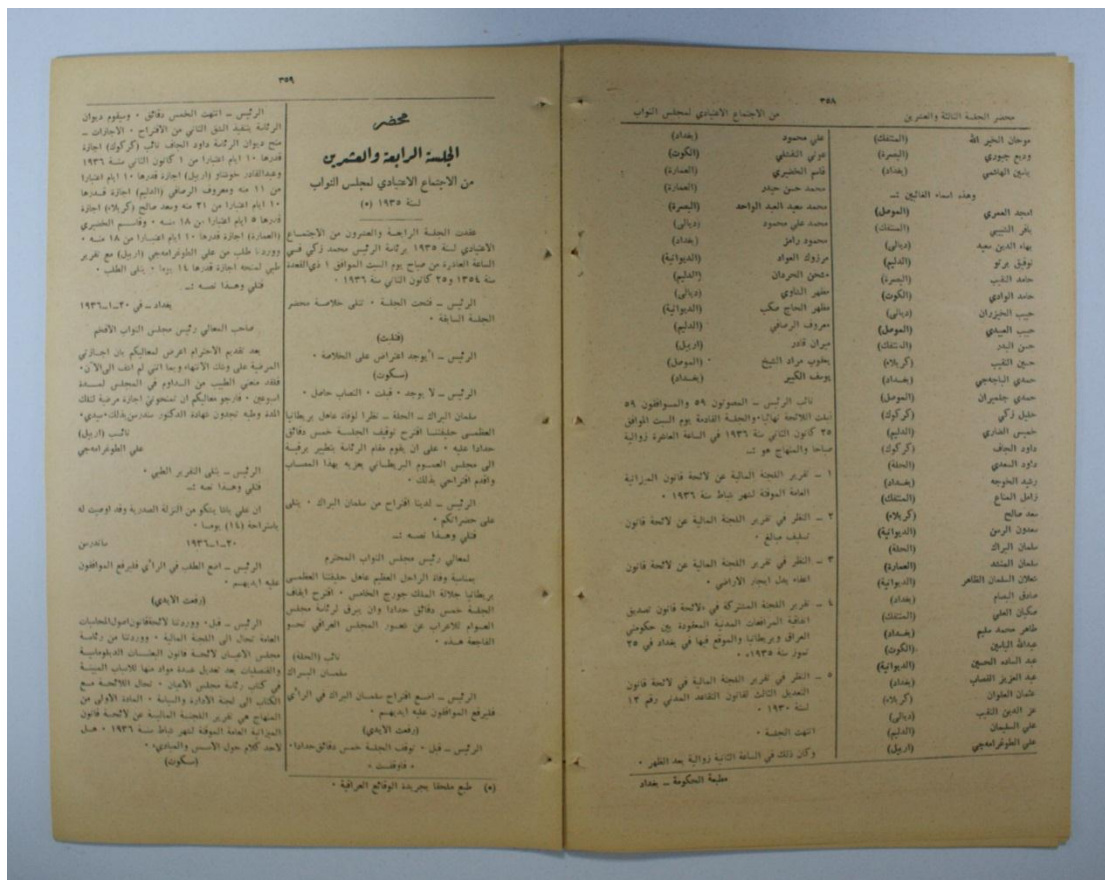 ٣٥٨
محضر الجلسة الثالثة والعشرين
من الاجتماع الاعتيادي لمجلس النواب
موحان الخير الله (المنتفك)
وديع جبوري (البصرة)
ياسين الهاشمي (بغداد)
وهذه اسماء الغائبين :ـ
امجد العمري (الموصل)
باقر الشبيبي (المنتفك)
بهاء الدين سعيد (ديالى)
توفيق برتو (الدليم)
حامد النقيب (البصرة)
حامد الوادي (الكوت)
حبيب الخيزران (ديالى)
حبيب العبيدي (الموصل)
حسن البدر (المنتفك)
حسين النقيب (كربلاء)
حمدي الباجه‌جي (بغداد)
حمدي جلميران (الموصل)
خليل زكي (كركوك)
خميس الضاري (الدليم)
داود الجاف (كركوك)
داود السعدي (الحلة)
رشيد الخوجه (بغداد)
زامل المناع (المنتفك)
سعد صالح (كربلاء)
سعدون الرسن (الديوانية)
سلمان البراك (الحلة)
سلمان المنشد (العمارة)
شعلان السلمان الظاهر (الديوانية)
صادق البصام (بغداد)
صكبان العلي (المنتفك)
طاهر محمد سليم (بغداد)
عبدالله الياسين (الكوت)
عبد الساده الحسين (الديوانية)
عبد العزيز القصاب (بغداد)
عثمان العلوان (كربلاء)
عز الدين النقيب (ديالى)
علي السليمان (الدليم)
علي الطوغرامه‌جي (اربيل)
علي محمود (بغداد)
عوني النقشلي (الكوت)
قاسم الخضيري (العمارة)
محمد حسن حيدر (العمارة)
محمد سعيد العبد الواحد (البصرة)
محمد علي محمود (ديالى)
محمود رامز (بغداد)
مرزوك العواد (الديوانية)
مشحن الحردان (الدليم)
مظهر الشاوي (ديالى)
مظهر الحاج صكب (الديوانية)
معروف الرصافي (الدليم)
ميران قادر (اربيل)
يعقوب مراد الشيخ (الموصل)
يوسف الكبير (بغداد)
نائب الرئيس ــ المصوتون ٥٩ والموافقون ٥٩
قبلت اللائحة نهائيا٠والجلسة القادمة يوم السبت الموافق
٢٥ كانون الثاني سنة ١٩٣٦ في الساعة العاشرة زوالية
صباحا والمنهاج هو :ـ
١ ــ تقرير اللجنة المالية عن لائحة قانون الميزانية
العامة الموقتة لشهر شباط سنة ١٩٣٦ ٠
٢ ــ النظر في تقرير اللجنة المالية عن لائحة قانون
تسليف مبالغ ٠
٣ ــ النظر في تقرير اللجنة المالية عن لائحة قانون
اعفاء بدل ايجار الاراضي ٠
٤ ــ تقرير اللجنة المشتركة في «لائحة قانون تصديق
اتفاقية المرافعات المدنية المعقودة بين حكومتي
العراق وبريطانيا والموقع فيها في بغداد في ٢٥
تموز سنة ١٩٣٥» ٠
٥ ــ النظر في تقرير اللجنة المالية في لائحة قانون
التعديل الثالث لقانون التقاعد المدني رقم ١٣
لسنة ١٩٣٠ ٠
انتهت الجلسة ٠
وكان ذلك في الساعة الثانية زوالية بعد الظهر ٠
مطبعة الحكومة ــ بغداد
٣٥٩
محضر
الجلسة الرابعة والعشرين
من الاجتماع الاعتيادي لمجلس النواب
لسنة ١٩٣٥ (٥)
عقدت الجلسة الرابعة والعشرون من الاجتماع
الاعتيادي لسنة ١٩٣٥ برئاسة الرئيس محمد زكي في
الساعة العاشرة من صباح يوم السبت الموافق ١ ذي القعدة
سنة ١٣٥٤ و٢٥ كانون الثاني سنة ١٩٣٦ ٠
الرئيس ــ فتحت الجلسة ٠ تتلى خلاصة محضر
الجلسة السابقة ٠
(فتليت)
الرئيس ــ أيوجد اعتراض على الخلاصة ٠
(سكوت)
الرئيس ــ لا يوجد ٠ قبلت ٠ النصاب حاصل ٠
سلمان البراك ــ الحلة ــ نظرا لوفاة عاهل بريطانيا
العظمى حليفتنا اقترح توقيف الجلسة خمس دقائق
حدادا عليه ٠ على ان يقوم مقام الرئاسة بتطيير برقية
الى مجلس العموم البريطاني يعزيه بهذا المصاب
واقدم اقتراحي بذلك ٠
الرئيس ــ لدينا اقتراح من سلمان البراك ٠ يتلى
على حضراتكم ٠
فتلي وهذا نصه :ـ
لمعالي رئيس مجلس النواب المحترم
بمناسبة وفاة الراحل العظيم عاهل حليفتنا العظمى
بريطانيا جلالة الملك جورج الخامس ٠ اقترح ايقاف
الجلسة خمس دقائق حدادا وان يبرق لرئاسة مجلس
العموم للاعراب عن شعور المجلس العراقي نحو
الفاجعة هذه ٠
نائب (الحلة)
سلمان البراك
الرئيس ــ اضع اقتراح سلمان البراك في الرأي
فليرفع الموافقون عليه ايديهم ٠
(رفعت الأيدي)
الرئيس ــ قبل ٠ توقف الجلسة خمس دقائق حدادا٠
٠ فاوقفت ٠
(٥) طبع ملحقا بجريدة الوقائع العراقية ٠
الرئيس ــ انتهت الخمس دقائق ٠ وسيقوم ديوان
الرئاسة بتنفيذ الشق الثاني من الاقتراح ٠ الاجازات ــ
منح ديوان الرئاسة داود الجاف نائب (كركوك) اجازة
قدرها ١٠ ايام اعتبارا من ١ كانون الثاني سنة ١٩٣٦
وعبدالقادر خوشناو (اربيل) اجازة قدرها ١٠ ايام اعتبارا
من ١١ منه ومعروف الرصافي (الدليم) اجازة قدرها
١٠ ايام اعتبارا من ٢١ منه وسعد صالح (كربلاء) اجازة
قدرها ٥ ايام اعتبارا من ١٨ منه ٠ وقاسم الخضيري
(العمارة) اجازة قدرها ١٠ ايام اعتبارا من ١٨ منه ٠
ووردنا طلب من علي الطوغرامه‌جي (اربيل) مع تقرير
طبي لمنحه اجازة قدرها ١٤ يوما ٠ يتلى الطلب ٠
فتلي وهذا نصه :ـ
بغداد ــ في ٢٠ــ١ــ١٩٣٦
صاحب المعالي رئيس مجلس النواب الافخم
بعد تقديم الاحترام اعرض لمعاليكم بان اجازتي
المرضية على وشك الانتهاء وبما انني لم اشف الى الآن٠
فقد منعني الطبيب من الدوام في المجلس لمدة
اسبوعين ٠ فارجو معاليكم ان تمنحوني اجازة مرضية لتلك
المدة وطيه تجدون شهادة الدكتور سندرسن بذلك٠سيدي٠
نائب (اربيل)
علي الطوغرامه‌جي
الرئيس ــ يتلى التقرير الطبي ٠
فتلي وهذا نصه :ـ
ان علي باشا يشكو من النزلة الصدرية وقد اوصيت له
باستراحة (١٤) يوما ٠
٢٠ــ١ــ١٩٣٦ ساندرسن
الرئيس ــ اضع الطلب في الرأي فليرفع الموافقون
عليه ايديهم ٠
(رفعت الأيدي)
الرئيس ــ قبل٠ ووردتنا لائحة قانون اصول المحاسبات
العامة تحال الى اللجنة المالية ٠ ووردتنا من رئاسة
مجلس الاعيان لائحة قانون البعثات الدبلوماسية
والقنصليات بعد تعديل عدة مواد منها للاسباب المبينة
في كتاب رئاسة مجلس الاعيان ٠ تحال اللائحة مع
الكتاب الى لجنة الادارة والسياسة ٠ المادة الأولى من
المنهاج هي تقرير اللجنة المالية عن لائحة قانون
الميزانية العامة الموقتة لشهر شباط سنة ١٩٣٦ ٠ هل
لأحد كلام حول الأسس والمبادئ٠
(سكوت)